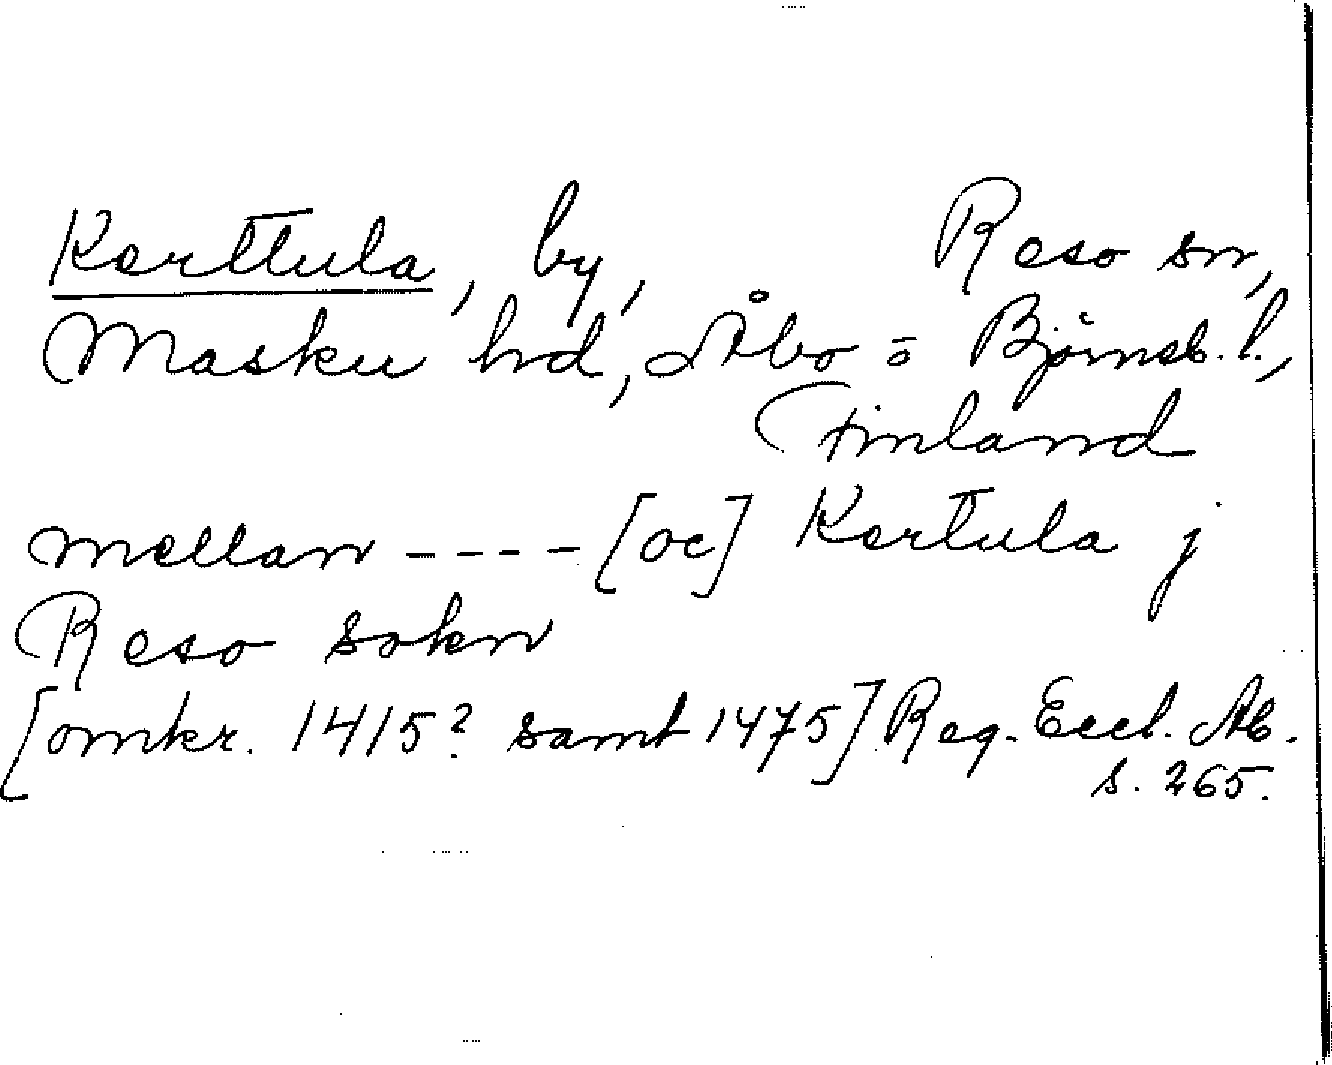 Kerttula, by, Reso sn,
Masku hd, Åbo o Björneb. l.,
Finland
mellan ---- [oc] Kertula j
Reso sokn
[omkr. 1415? samt 1475] Reg. Eccl. Ab.
s. 265.